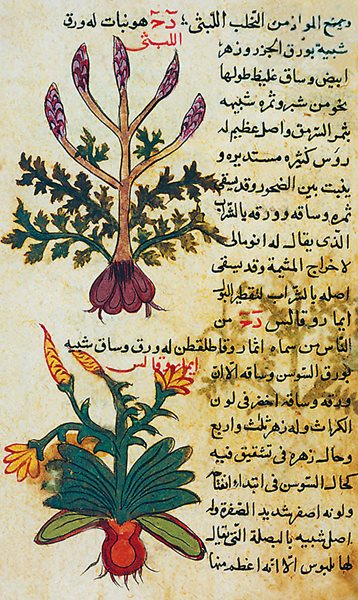 ويمنع المواد من التحلب دح هو نبات له ورق
اللبثي
شبيه بورق الجزر وزهر
ابيض وساق غليظ طولها
نحو من شبر وثمره شبيه
بثمر السرمق واصل عظيم له
روس كثيره مستديره و
ينبت بين الصخور وقد يسقى
ثمره وساقه وورقه بالشراب
الذي يقال له انومالي
لاخراج المشيمة وقد يسقى
اصله بالشراب لتقطير البول
ايمارو قالس دح من
الناس من سماه له ورق وساق شبيه
ايمارو قالس
بورق السوسن وساقه الا ان
ورقه وساقه اخضر في لون
الكراث وله زهر ثلث واربع
وحال زهره في تشقيق فيه
كحال السوسن في ابتداء انفتاح
ولونه اصفر شديد الصفرة وله
اصل شبيه بالبصلة التي يقال
لها بلبوس الا انه اعظم منها